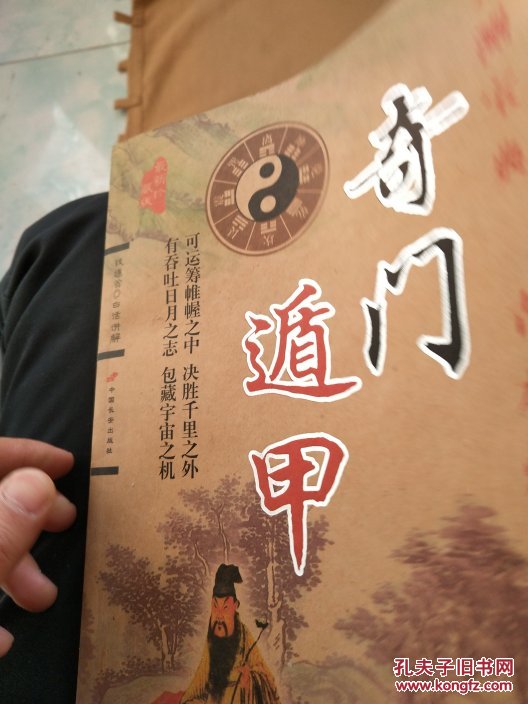 奇门
遁甲
可运筹帷幄之中 决胜千里之外
有吞吐日月之志 包藏宇宙之机
白话讲解
中国长安出版社
孔夫子旧书网
www.kongfz.com